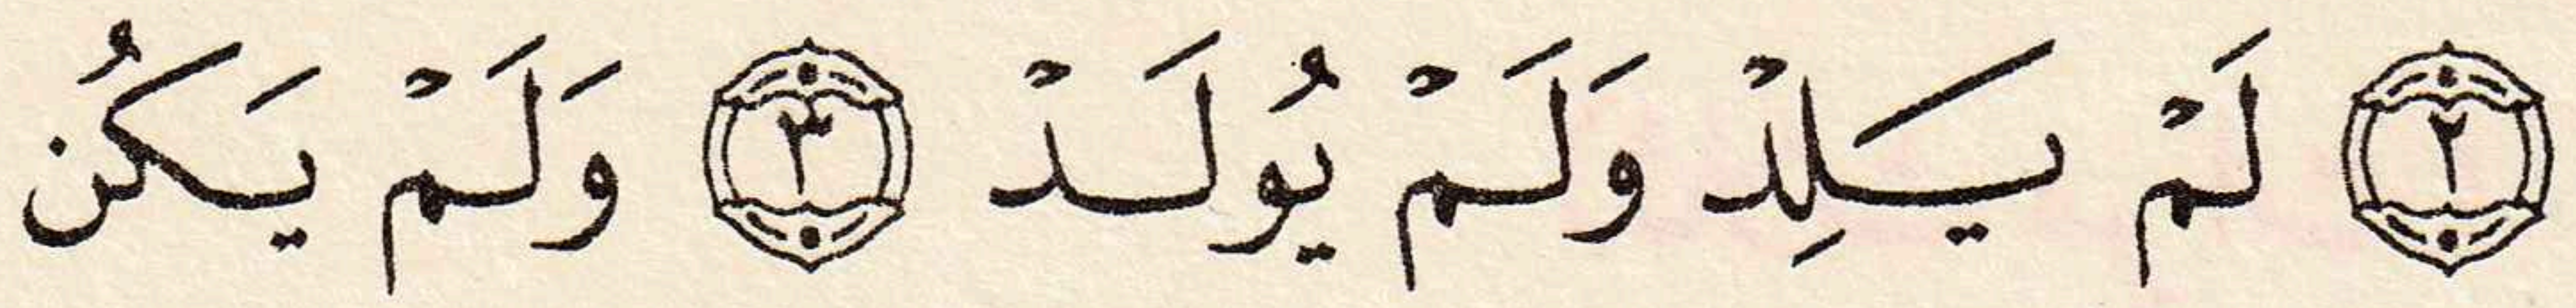 ٢ لَمْ يَلِدْ وَلَمْ يُولَدْ ٣ وَلَمْ يَكُن